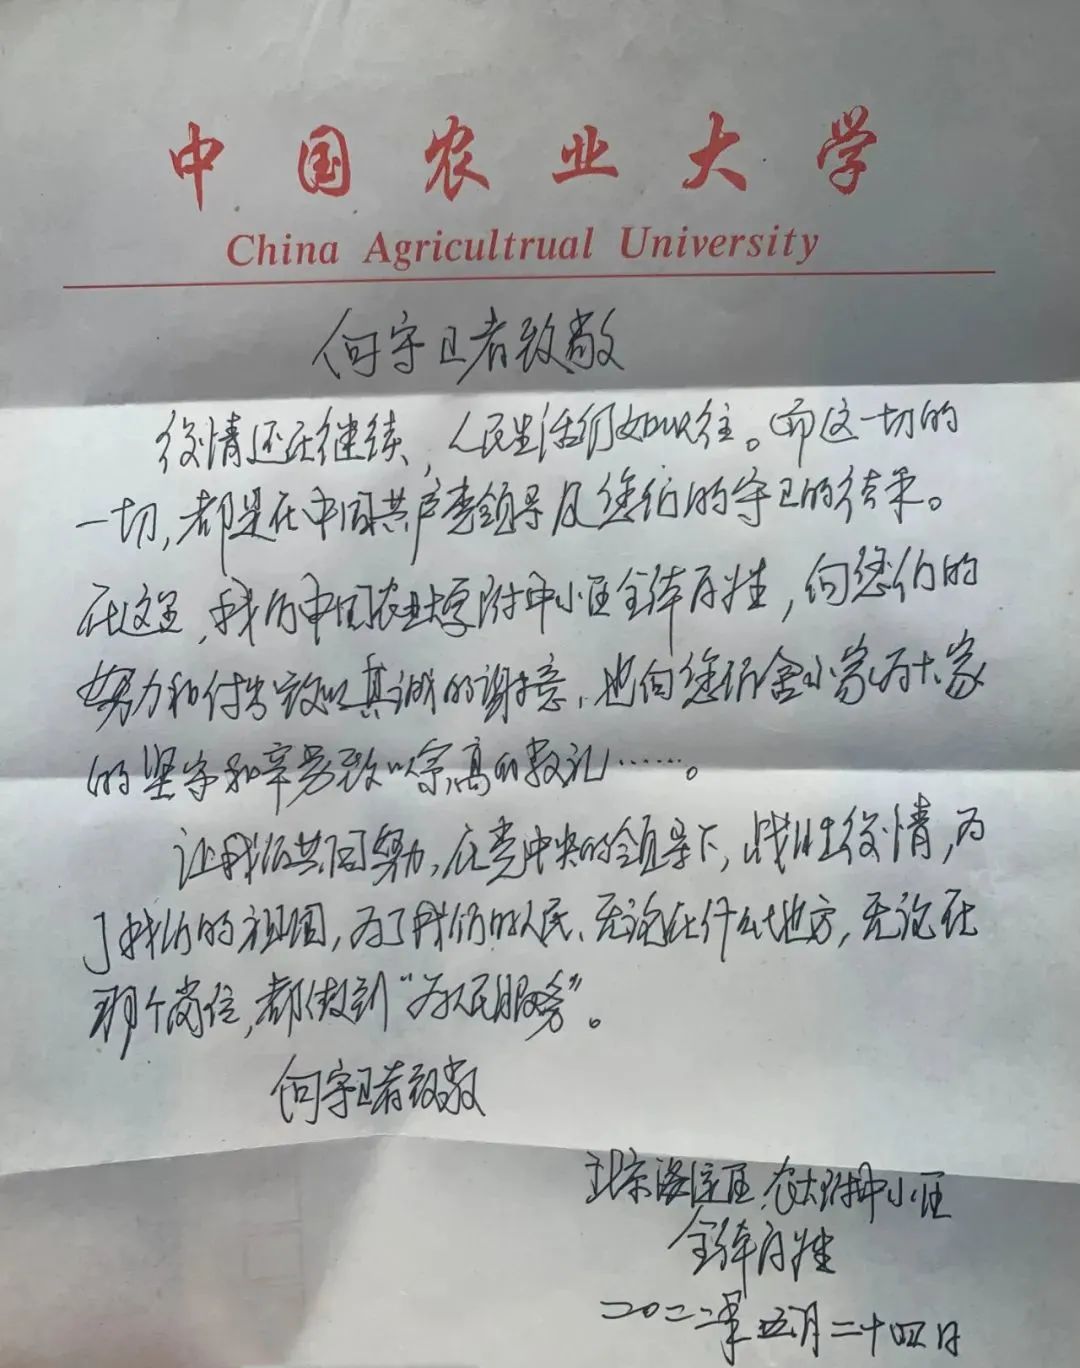 中国农业大学
China Agricultrual University
向守卫者致敬
疫情还在继续，人民生活仍如以往。而这一切的
一切，都是在中国共产党领导及您们的守卫的结果。
在这里，我们中国农业大学附中小区全体居民，向您们的
努力和付出致以真诚的谢意，也向您们舍小家为大家
的坚守和辛劳致以崇高的敬礼……。
让我们共同努力，在党中央的领导下，战胜疫情，为
了我们的祖国，为了我们的人民、无论在什么地方，无论在
那个岗位，都做到“为人民服务”。
向守卫者致敬
北京海淀区，农大附中小区
全体
二〇二二年五月二十四日